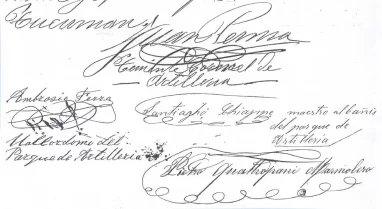 Tucuman
Juan Penna
Teniente Coronel de
Artilleria
Ambrosio Ferra
Santiago maestro albañil
del parque de
Artilleria
Mallordomo del
Parque de Artilleria
Pietro Quattropani Marmolero